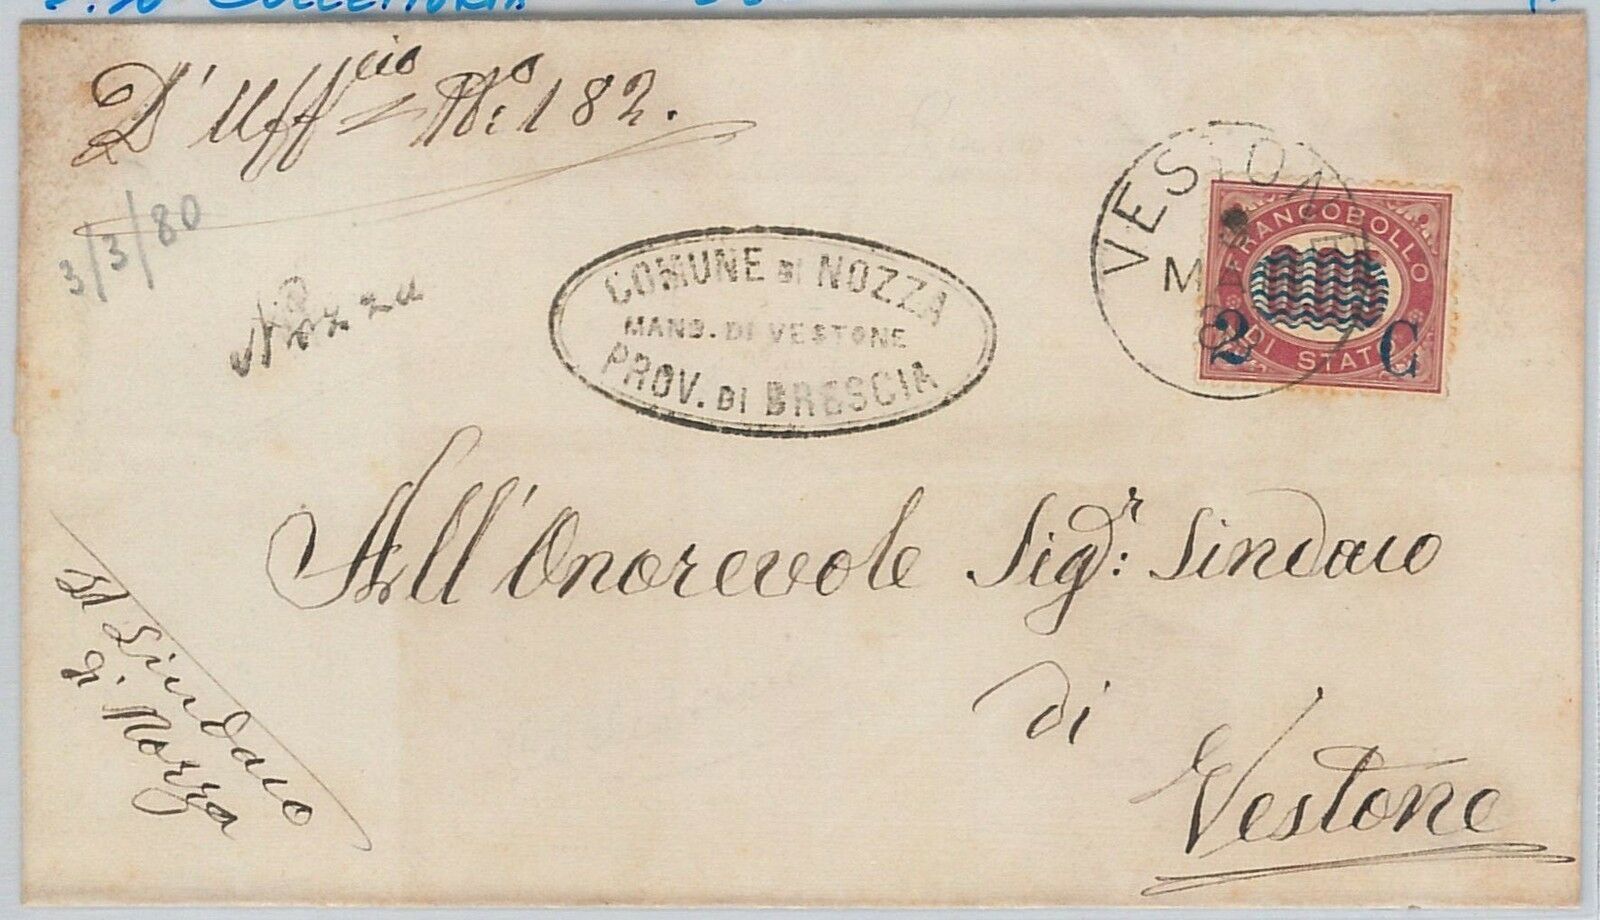 COLLETTORIA
D'Uff.cio No. 182.
3/3/80
Nozza
COMUNE DI NOZZA
MAND. DI VESTONE
PROV. DI BRESCIA
VESTONE
MAR
FRANCOBOLLO
DI STATO
2 C
All'Onorevole Sigr. Sindaco
di
Vestone
Il Sindaco
di Nozza